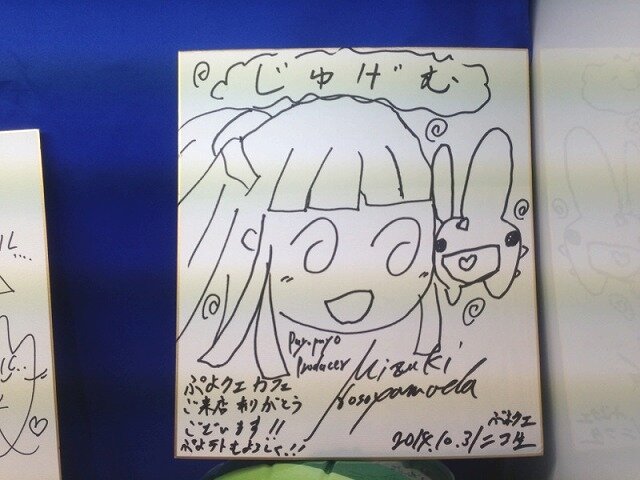 じゅげむ
Puyopuyo
Producer
Mizuki
Hosoyamada
ぷよクエ カフェ
ご来店 ありがとう
ございます!!
ぷよテトもよろしく!!
ぷよクエ
2014.10.31 ニコ生